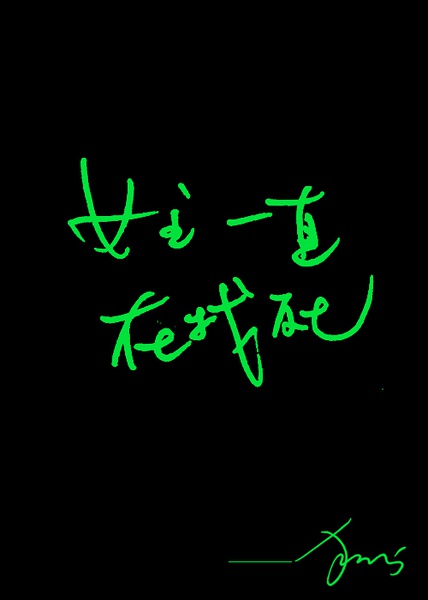 女主一直
在找死